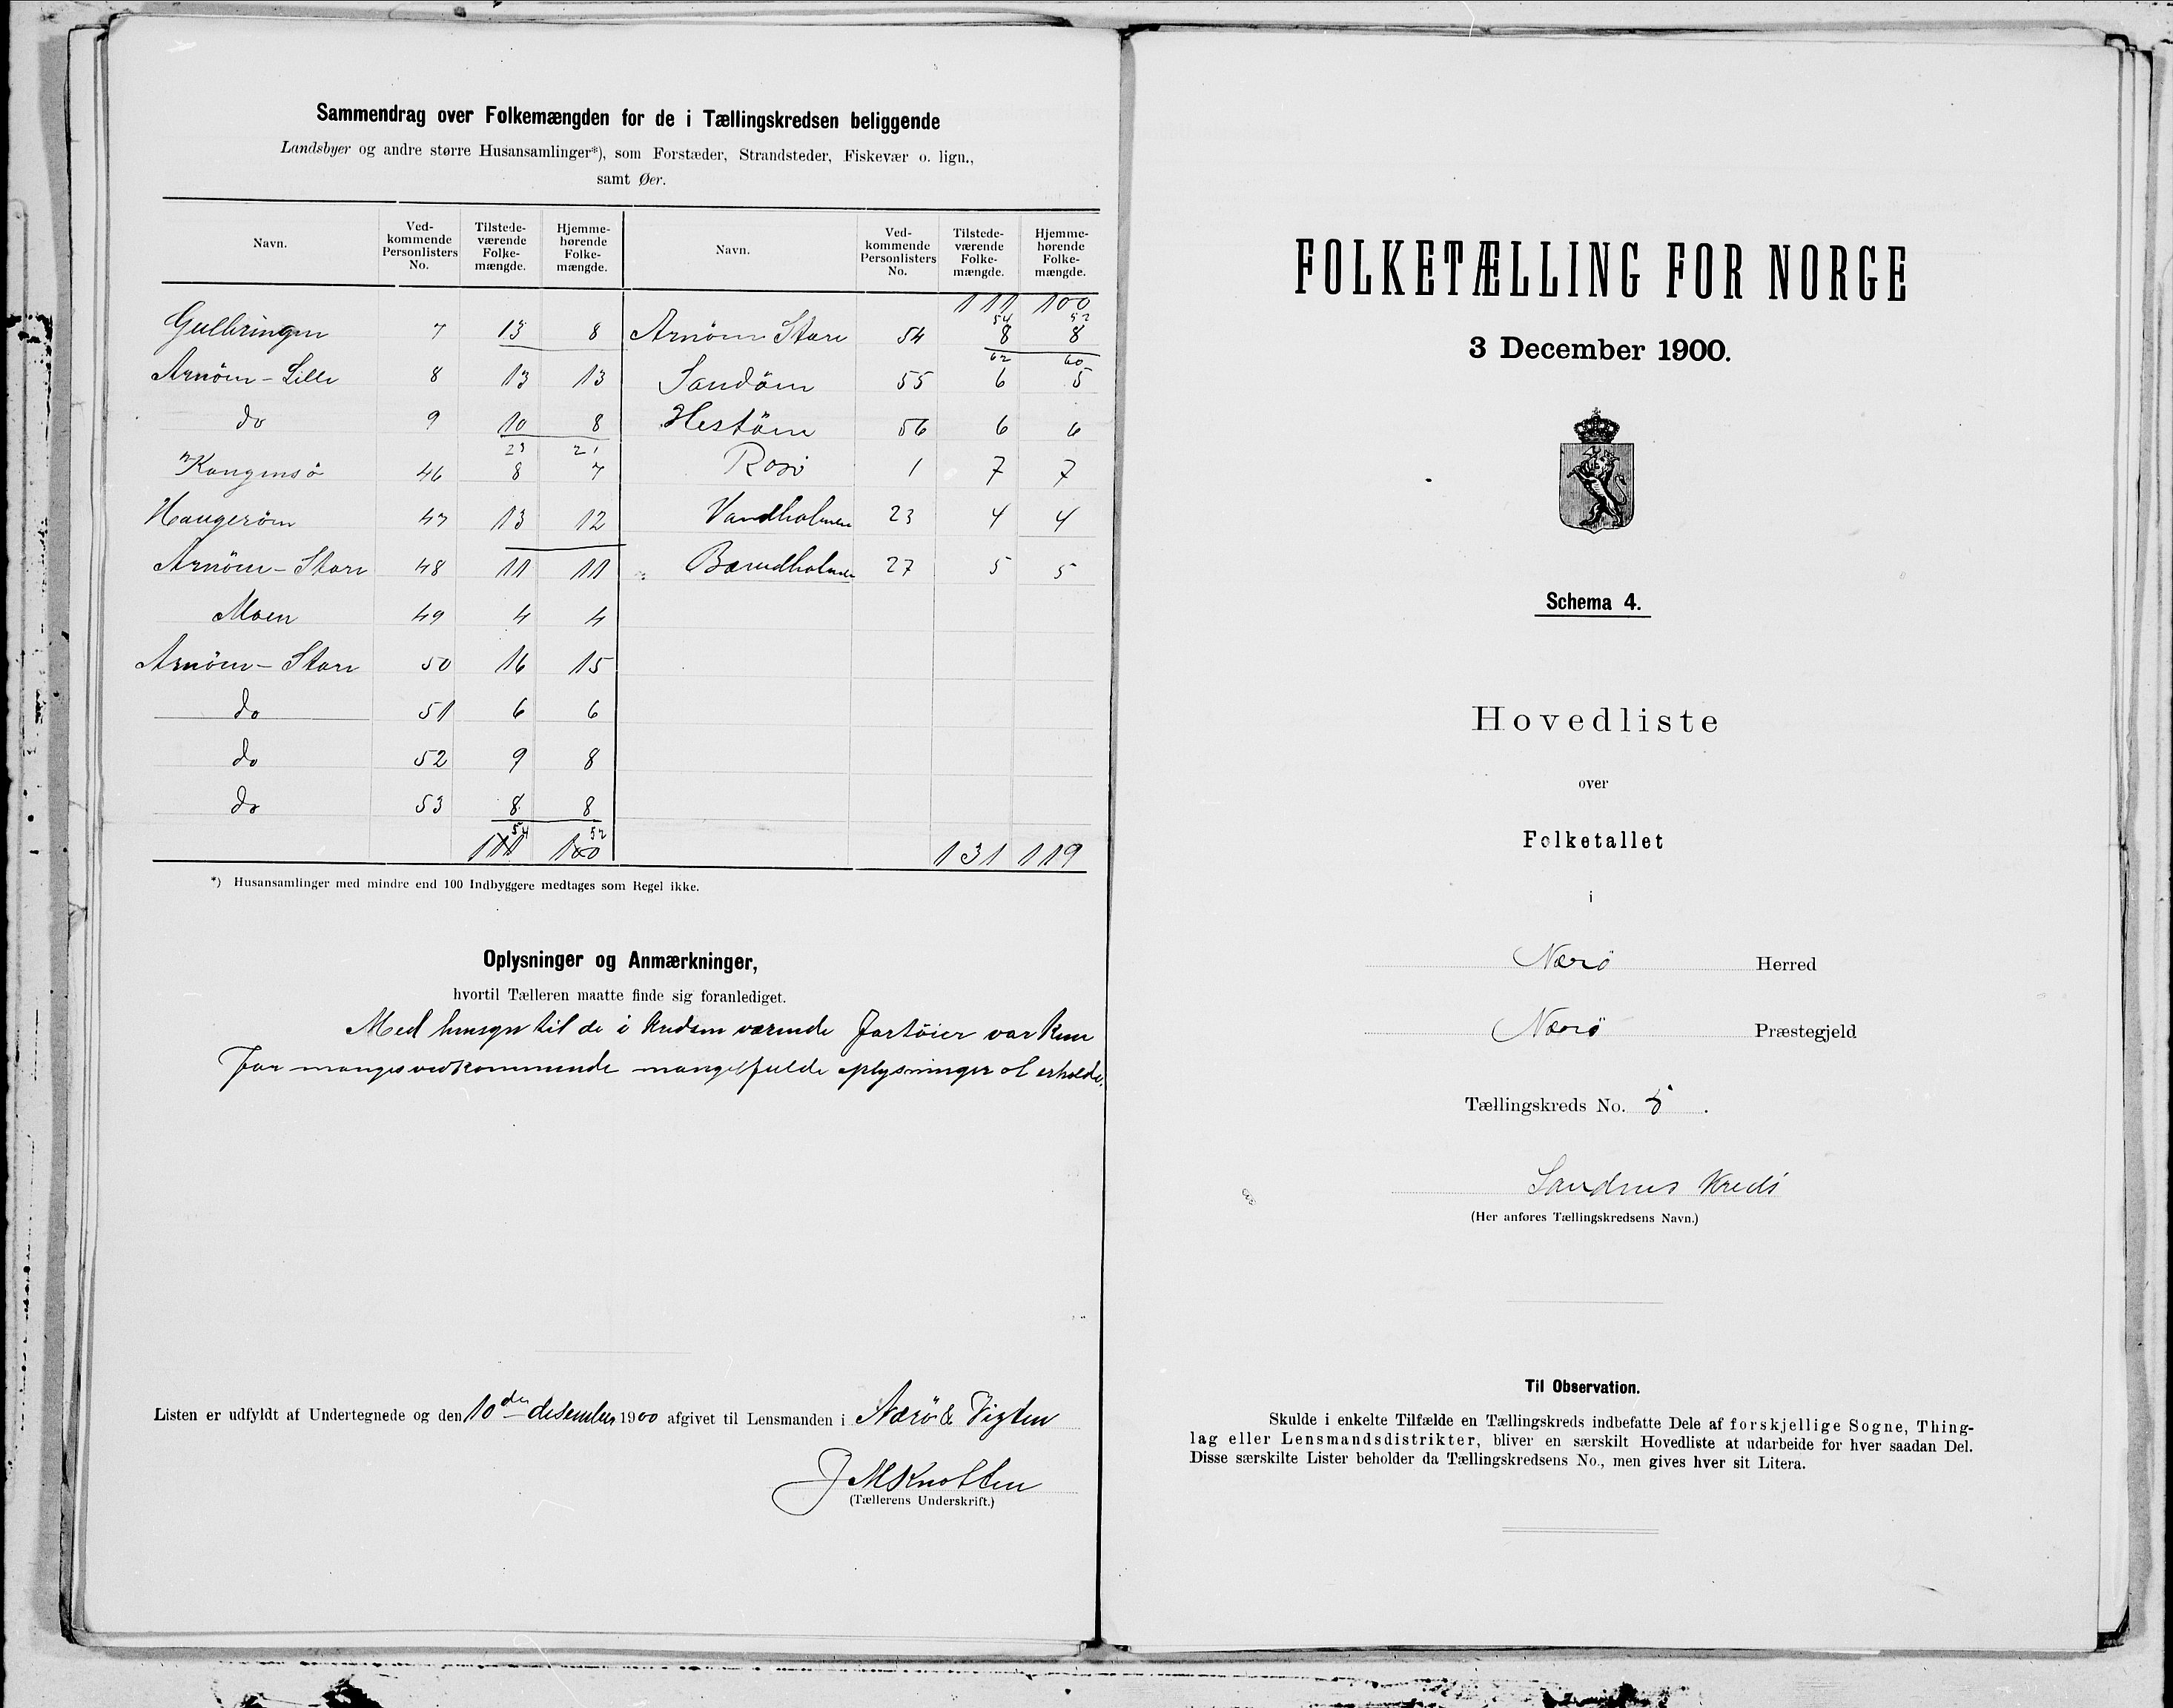 Sammendrag over Folkemængden for de i Tællingskredsen beliggende
Landsbyer og andre større Husansamlinger*), som Forstæder, Strandsteder, Fiskevær o. lign.,
samt Øer.
Navn. Ved-kommende Personlisters No. Tilstede-værende Folke-mængde. Hjemme-hørende Folke-mængde. Navn. Ved-kommende Personlisters No. Tilstede-værende Folke-mængde. Hjemme-hørende Folke-mængde.
111 100
Gulbringen 7 13 8 Arnöen Store 54 8 8
54 52
62 60
Arnöen - Lille 8 13 13 Sandöen 55 6 5
do 9 10 8 Hestöen 56 6 6
23 21
Kongensö 46 8 7 Rosö 1 7 7
Haugeröen 47 13 12 Vandholmen 23 4 4
Arnöen - Store 48 11 11 Barudholmen 27 5 5
Moen 49 4 4
Arnöen - Store 50 16 15
do 51 6 6
do 52 9 8
do 53 8 8
54 52
111 100 131 119
*) Husansamlinger med mindre end 100 Indbyggere medtages som Regel ikke.
Oplysninger og Anmærkninger,
hvortil Tælleren maatte finde sig foranlediget.
Med hensyn til de i kredsen værende fartöier var kun
for manges vedkommende mangelfulde oplysninger at erholde.
Listen er udfyldt af Undertegnede og den 10de desember 1900 afgivet til Lensmanden i Nærö & Vigten
J M Knotten
(Tællerens Underskrift.)
FOLKETÆLLING FOR NORGE
3 December 1900.
Schema 4.
Hovedliste
over
Folketallet
i
Nærö Herred
Nærö Præstegjeld
Tællingskreds No. 5.
Sandnes Kreds
(Her anføres Tællingskredsens Navn.)
Til Observation.
Skulde i enkelte Tilfælde en Tællingskreds indbefatte Dele af forskjellige Sogne, Thing-
lag eller Lensmandsdistrikter, bliver en særskilt Hovedliste at udarbeide for hver saadan Del.
Disse særskilte Lister beholder da Tællingskredsens No., men gives hver sit Litera.